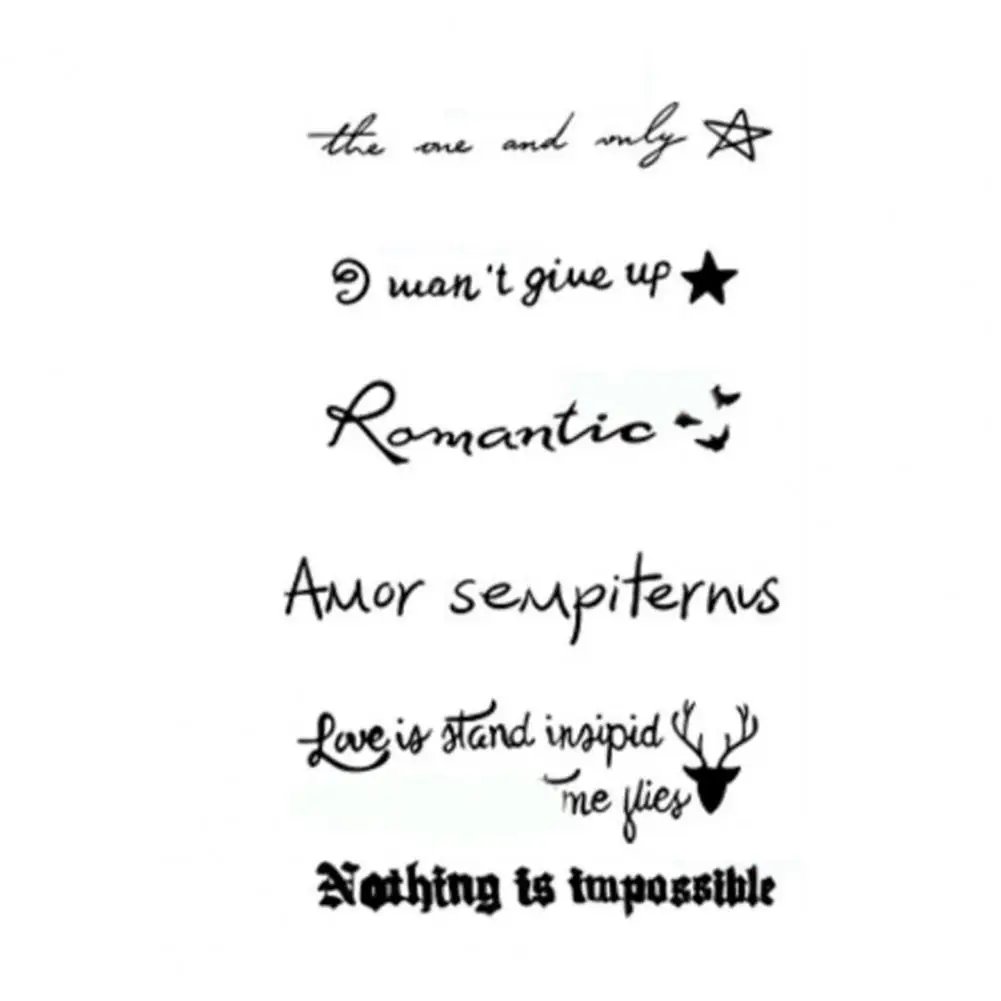 the one and only
I wan't give up
Romantic
Amor sempiternus
Love is stand insipid
me flies
Nothing is impossible